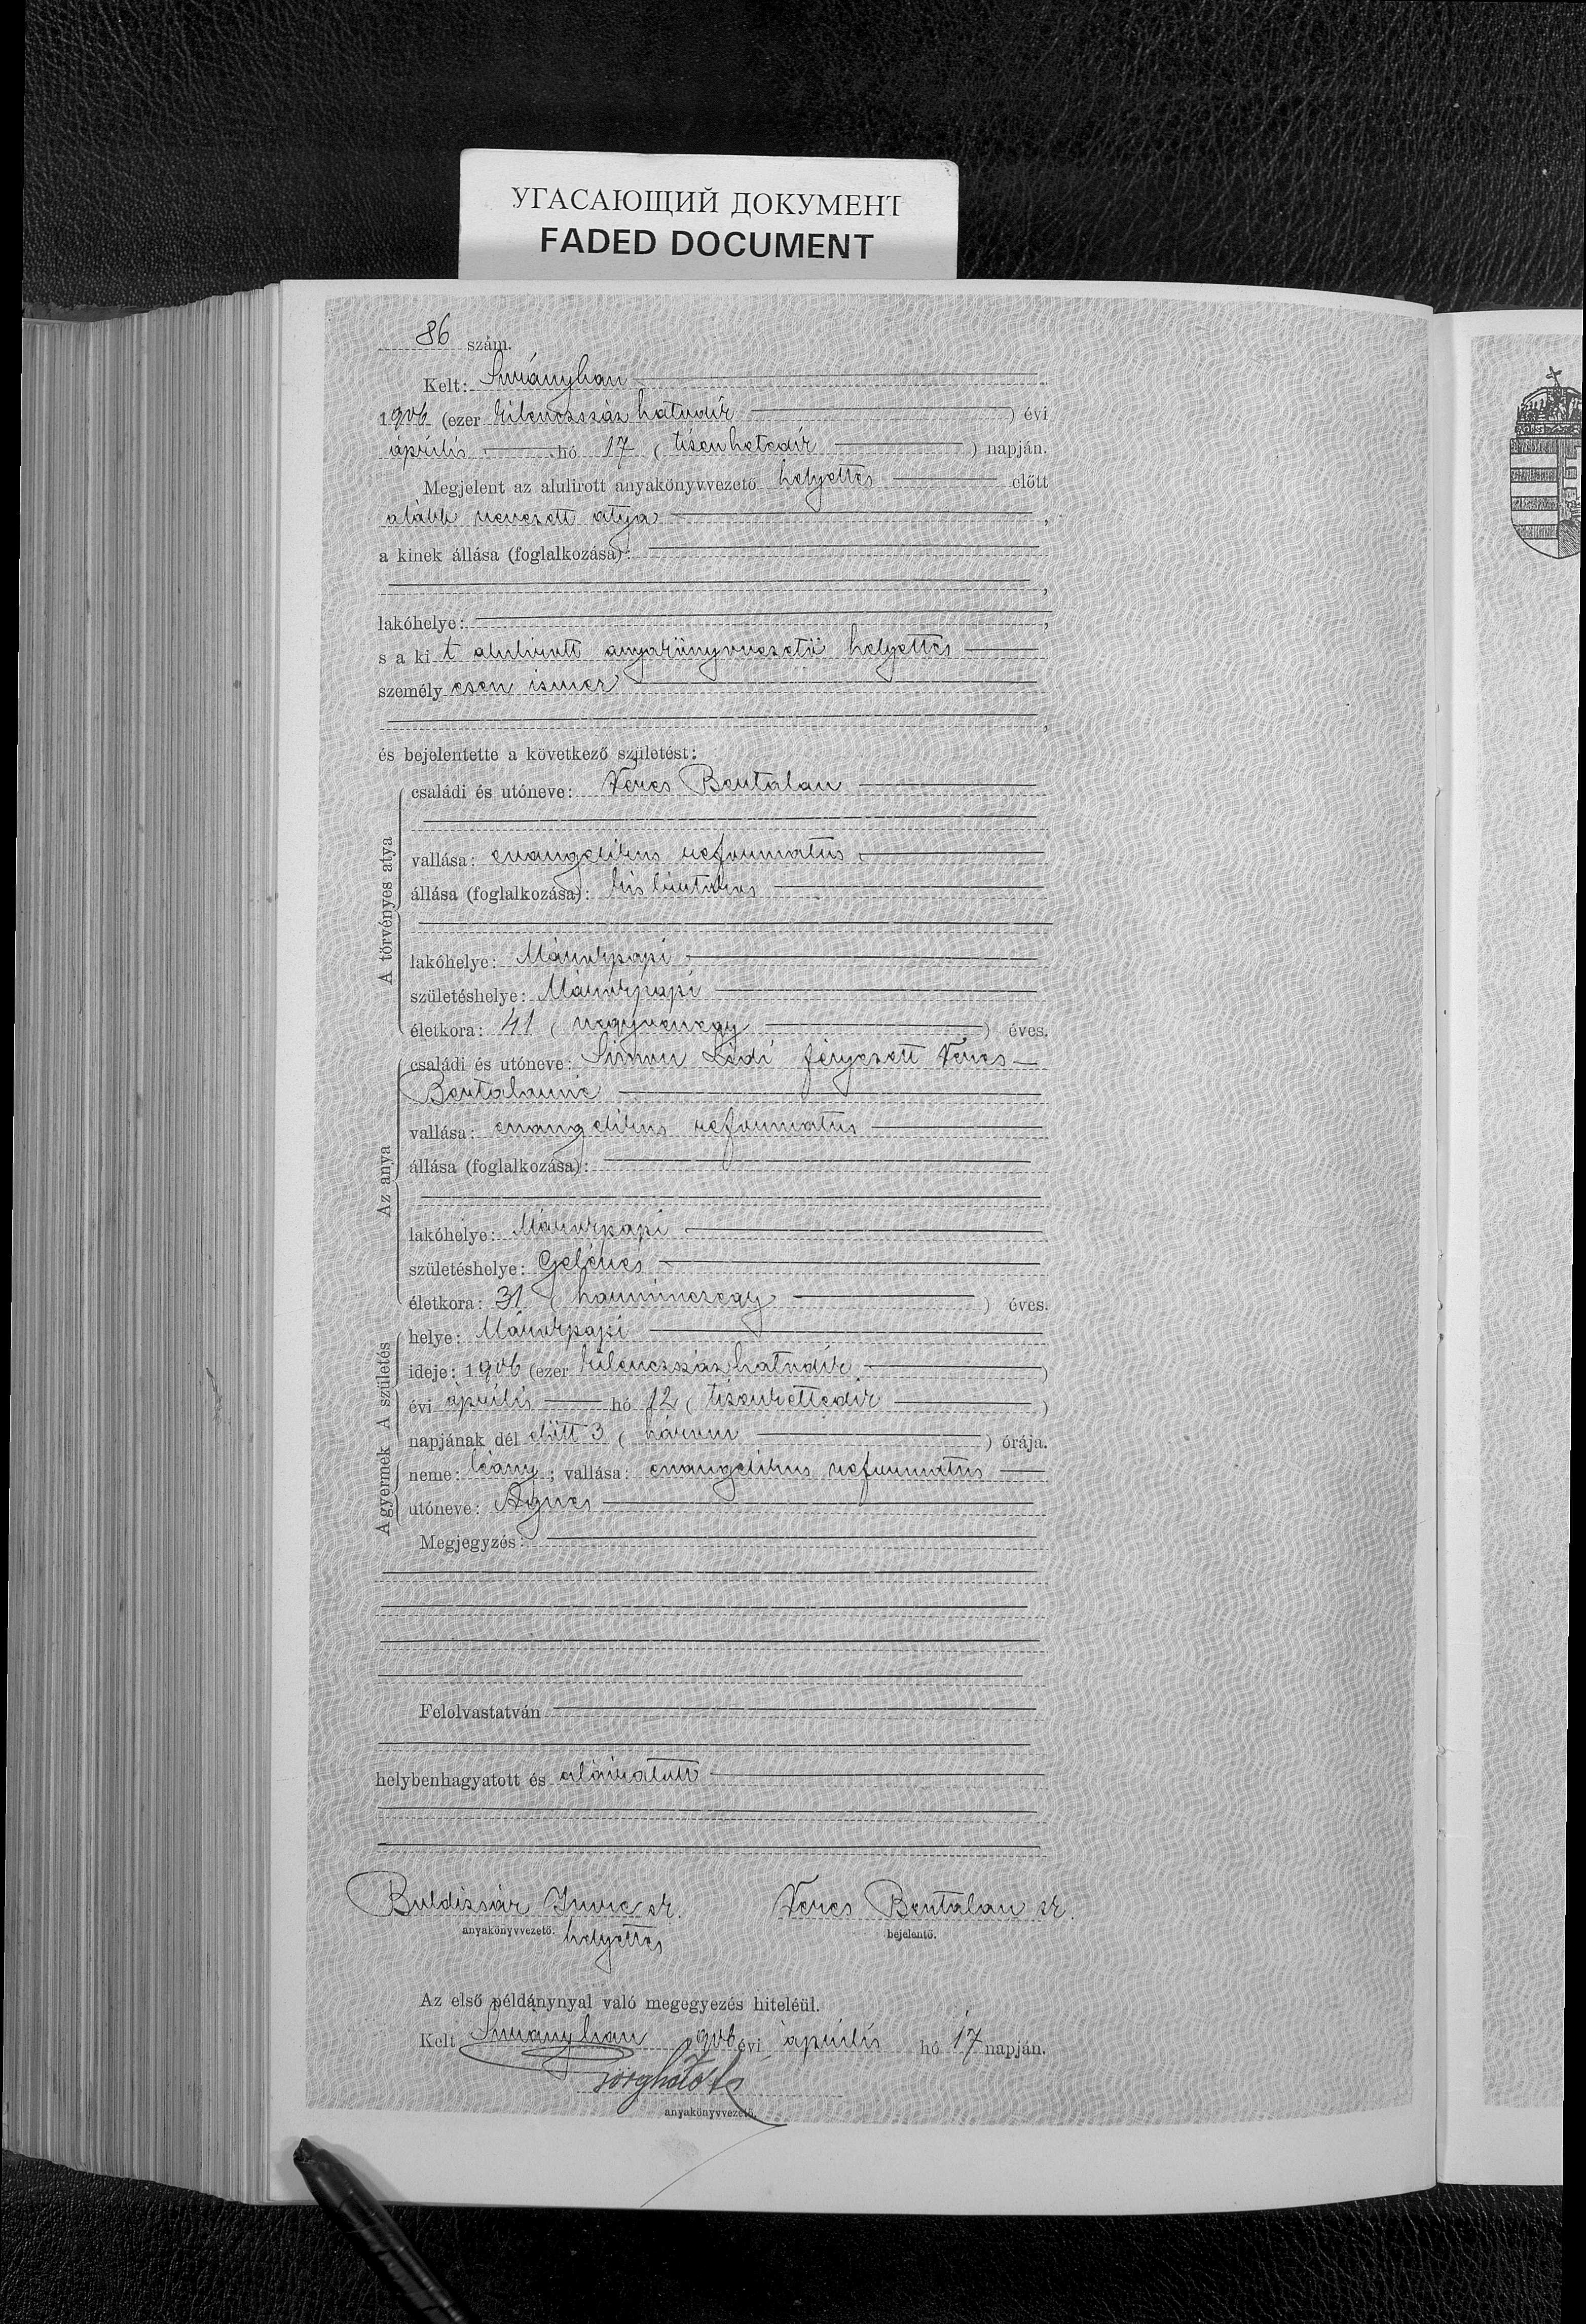 УГАСАЮЩИЙ ДОКУМЕНТ
FADED DOCUMENT
86 szám.
Kelt: Surányban
1906 (ezer kilenczszáz hatodik) évi
április hó 17 (tizenhetedik) napján.
Megjelent az alulirott anyakönyvvezető helyettes előtt
alább nevezett atya,
a kinek állása (foglalkozása):
,
lakóhelye: ,
s a kit alulirott anyakönyvvezető helyettes
személyesen ismer
,
és bejelentette a következő születést:
A törvényes atya
családi és utóneve: Veres Bertalan
vallása: evangelikus reformatus
állása (foglalkozása): kis birtokos
lakóhelye: Márokpapi
születéshelye: Márokpapi
életkora: 41 (negyvenegy) éves.
Az anya
családi és utóneve: Simon Lidi férjezett Veres
Bertalanné
vallása: evangelikus reformatus
állása (foglalkozása):
lakóhelye: Márokpapi
születéshelye: Gelénes
életkora: 31 (harminczegy) éves.
A születés
helye: Márokpapi
ideje: 1906 (ezer kilenczszáz hatodik)
évi április hó 12 (tizenkettedik)
napjának dél előtt 3 (három) órája.
A gyermek
neme: leány; vallása: evangelikus reformatus
utóneve: Ágnes
Megjegyzés:
Felolvastatván
helybenhagyatott és aláiratott
Buldizsár Imre sk. Veres Bertalan sk.
anyakönyvvezető. helyettes bejelentő.
Az első példánynyal való megegyezés hiteléül.
Kelt Surányban 906 évi április hó 17 napján.
anyakönyvvezető.